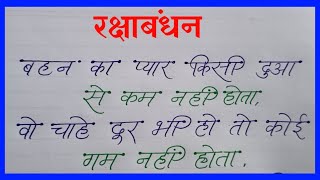 रक्षाबंधन
बहन का प्यार किसी दुआ
से कम नहीं होता,
वो चाहे दूर भी हो तो कोई
गम नहीं होता.